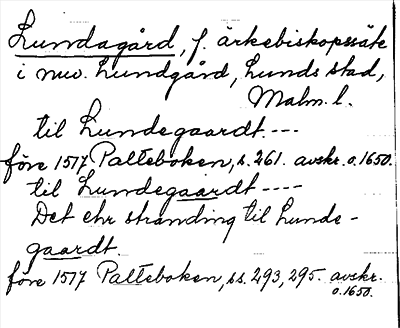 Lundagård, f. ärkebiskopssäte
i nuv. Lundgård, Lunds stad,
Malm. l.
til Lundegaardt. ---
före 1517 Palteboken, s. 261. avskr. o. 1650.
til Lundegaardt ----
Det ehr stranding til Lunde-
gaardt.
före 1517 Palteboken, ss. 293, 295. avskr.
o. 1650.